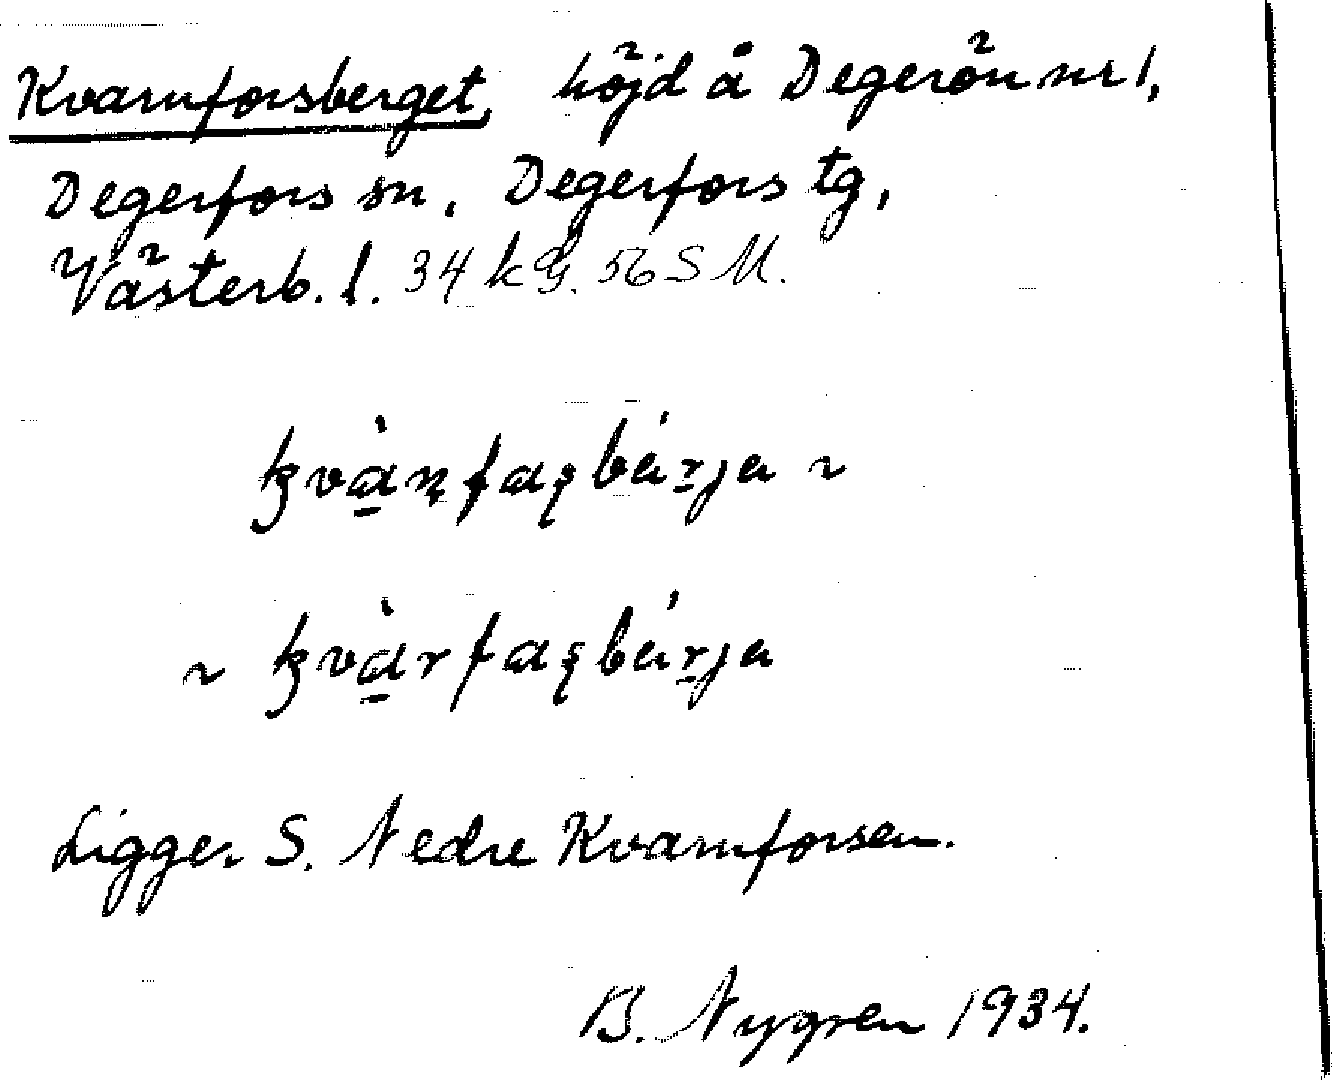 Kvarnforsberget, höjd å Degerön nr 1,
Degerfors sn, Degerfors tg,
Västerb. l. 34 k G. 56 S M.
kvà̠ɳfaʂbár̠ja ~
~ kvà̠rfaʂbár̠ja
Ligger S. Nedre Kvarnforsen.
B. Nygren 1934.